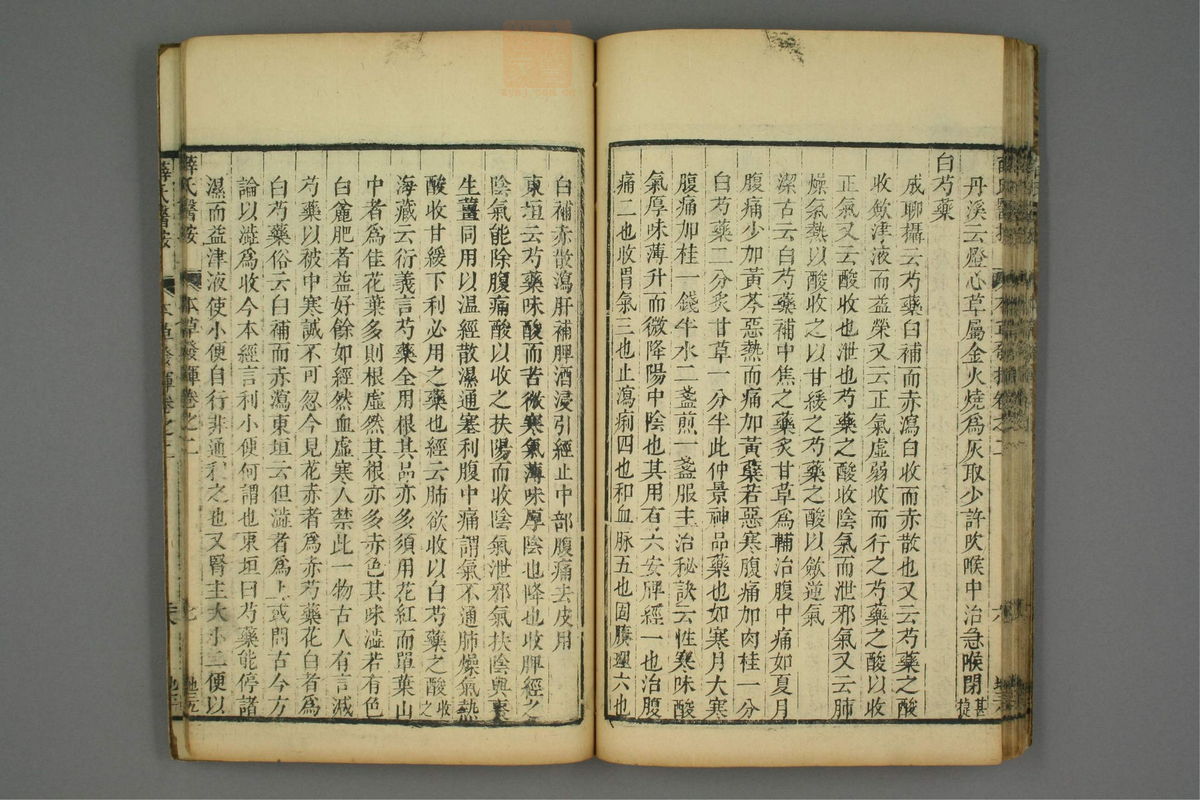 丹溪云燈心草屬金火燒爲灰取少許吹喉中治急喉閉甚捷
白芍藥
成聊攝云芍藥白補而赤瀉白收而赤散也又云芍藥之酸
收斂津液而益榮又云正氣虛弱收而行之芍藥之酸以收
正氣又云酸收也泄也芍藥之酸收陰氣而泄邪氣又云肺
燥氣熱以酸收之以甘緩之芍藥之酸以斂逆氣
潔古云白芍藥補中焦之藥炙甘草爲輔治腹中痛如夏月
腹痛少加黃芩惡熱而痛加黃蘗若惡寒腹痛加肉桂一分
白芍藥二分炙甘草一分半此仲景神品藥也如寒月大寒
腹痛加桂一錢半水二盞煎一盞服主治秘訣云性寒味酸
氣厚味薄升而微降陽中陰也其用有六安脾經一也治腹
痛二也收胃氣三也止瀉痢四也和血脉五也固腠理六也
白補赤散瀉肝補脾酒浸引經止中部腹痛去皮用
東垣云芍藥味酸而苦微寒氣薄味厚陰也降也收脾經之
陰氣能除腹痛酸以收之扶陽而收陰氣泄邪氣扶陰與棗
生薑同用以温經散濕通塞利腹中痛謂氣不通肺燥氣熱
酸收甘緩下利必用之藥也經云肺欲收以白芍藥之酸收之
海藏云衍義言芍藥全用根其品亦多須用花紅而單葉山
中者爲佳花葉多則根虛然其根亦多赤色其味澁若有色
白麄肥者益好餘如經然血虛寒人禁此一物古人有言減
芍藥以被中寒誠不可忽今見花赤者爲赤芍藥花白者爲
白芍藥俗云白補而赤瀉東垣云但澁者爲上或問古今方
論以澁爲收今本經言利小便何謂也東垣曰芍藥能停諸
濕而益津液使小便自行非通利之也又腎主大小二便以
薛氏醫按 本草發揮卷之二